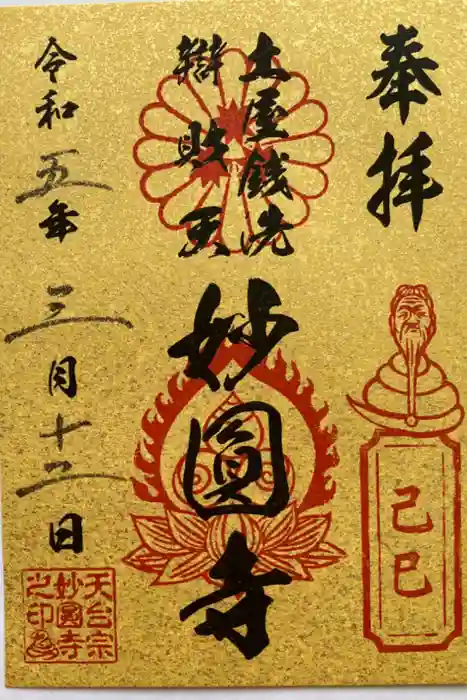 奉拝
己巳
土屋銭洗
辯財天
妙圓寺
令和五年三月十二日
天台宗
妙圓寺
之印